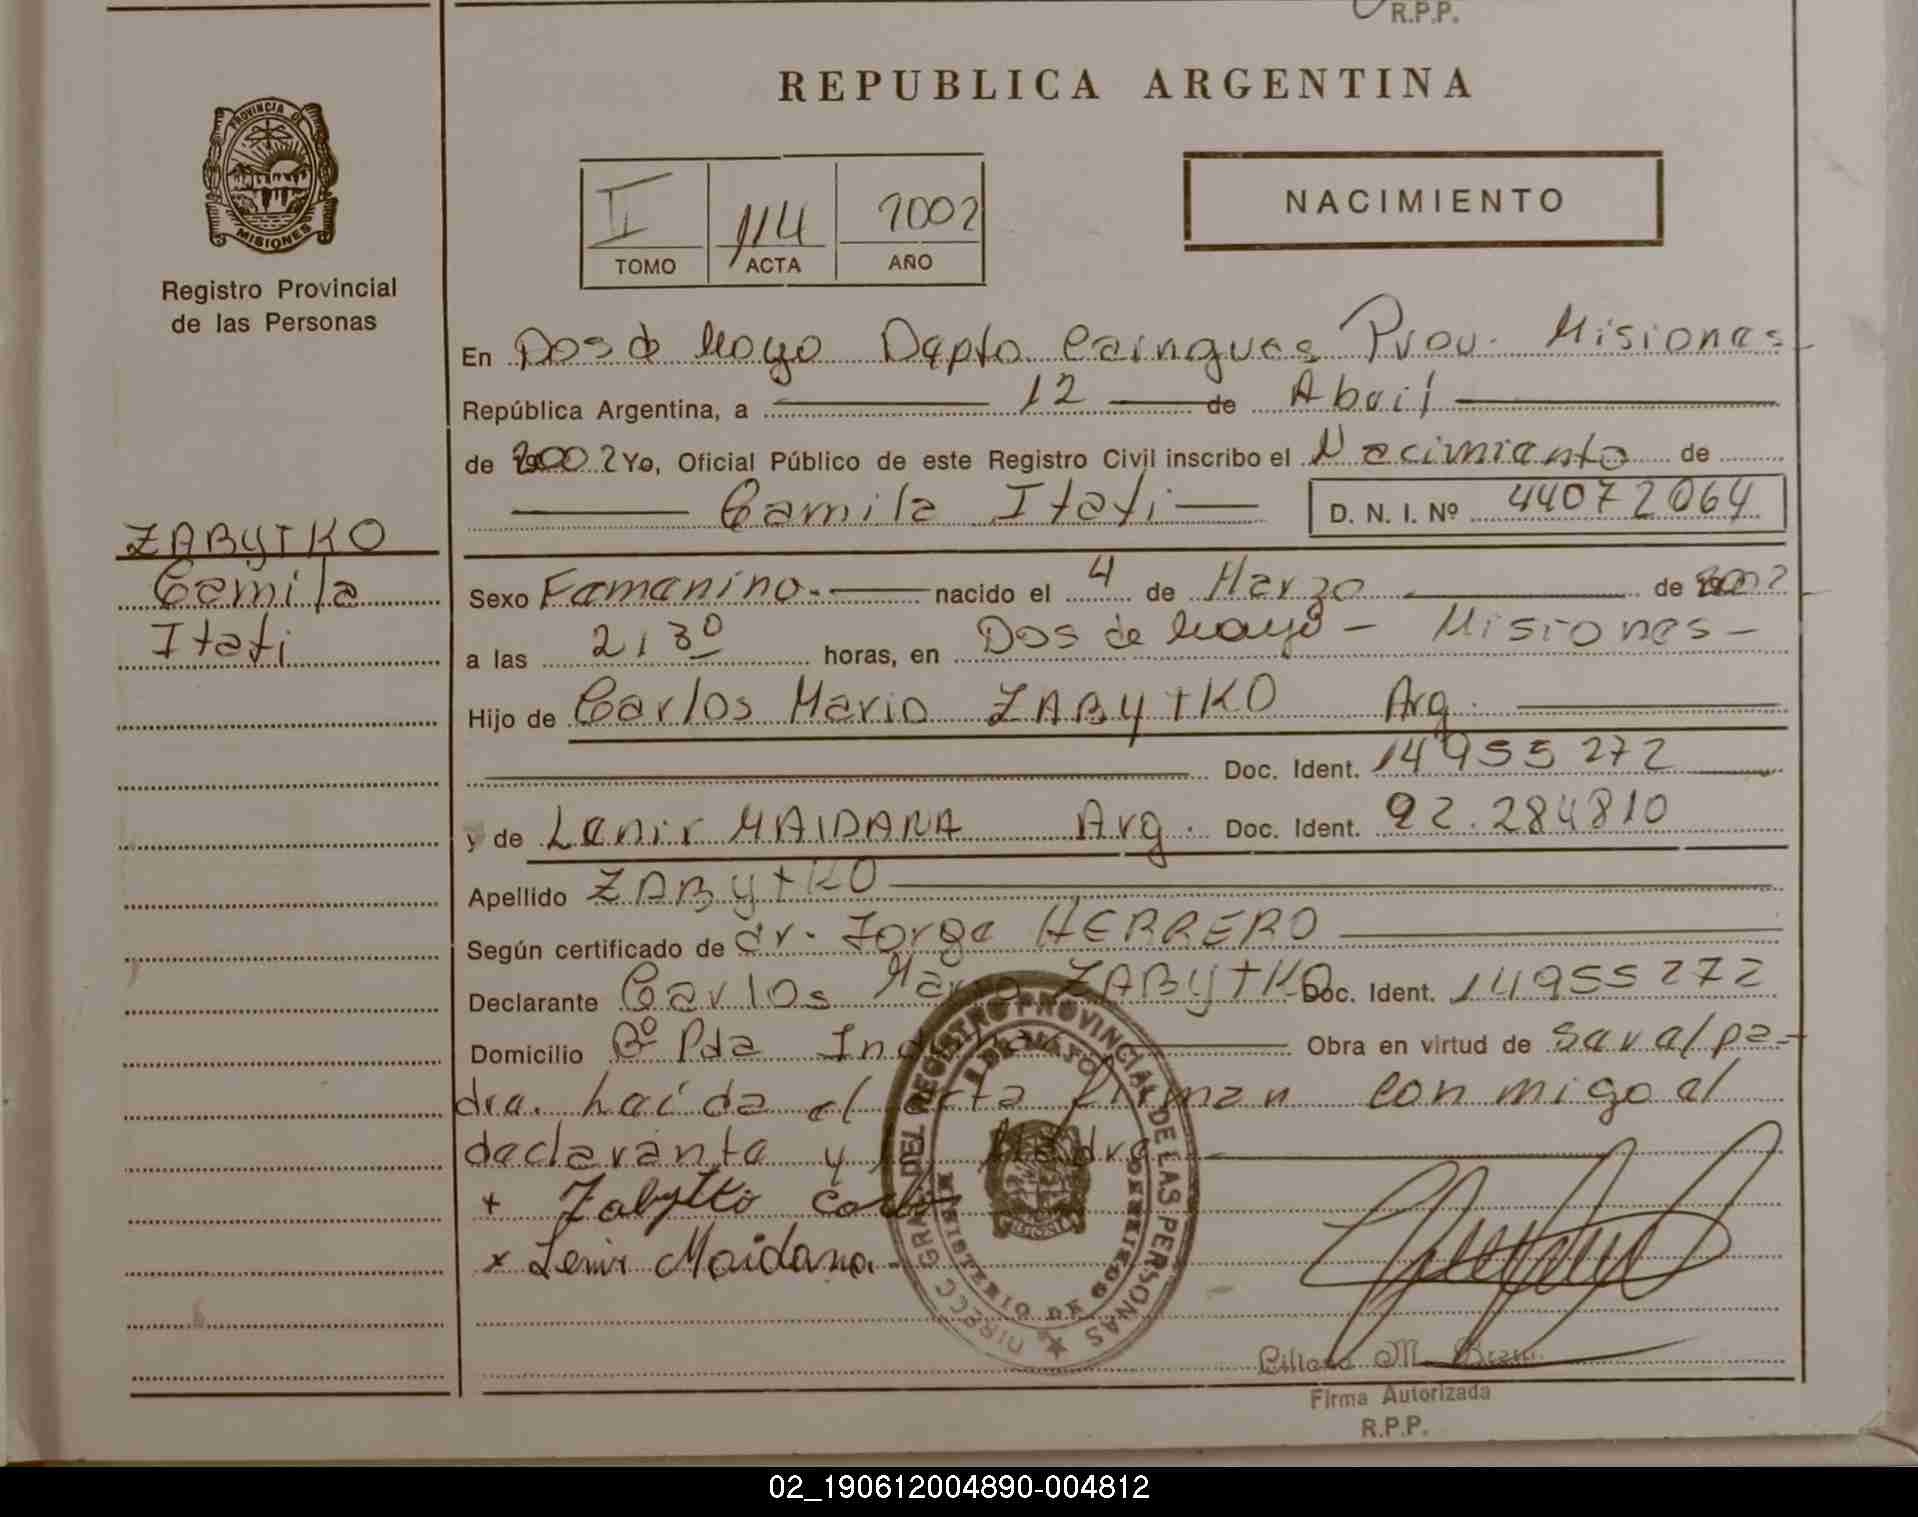 R.P.P.
REPUBLICA ARGENTINA
PROVINCIA DE
MISIONES
Registro Provincial
de las Personas
II 114 2002
TOMO ACTA AÑO
NACIMIENTO
En Dos de Mayo Depto Cainguas Prov. Misiones
República Argentina, a 12 de Abril
de 2002 Yo, Oficial Público de este Registro Civil inscribo el Nacimiento de
Camila Itati D. N. I. Nº 44072064
ZABYTKO
Camila
Itati
Sexo Femenino.- nacido el 4 de Marzo de 2002
a las 21 30 horas, en Dos de Mayo - Misiones -
Hijo de Carlos Mario ZABYTKO Arg.
Doc. Ident. 14955272
y de Lenir MAIDANA Arg. Doc. Ident. 92.284810
Apellido ZABYTKO
Según certificado de dr. Jorge HERRERO
Declarante Carlos Mario ZABYTKO Doc. Ident. 14955272
Domicilio Bº Pda Obra en virtud de ser el pa-
dre. Leída el acta firman conmigo el
declarante y Madre
+ Zabytko Carlos
x Lenir Maidana.
DIRECC GRAL DEL REGISTRO PROVINCIAL DE LAS PERSONAS
MINISTERIO DE GOBIERNO
Liliana M.
Firma Autorizada
R.P.P.
02_190612004890-004812